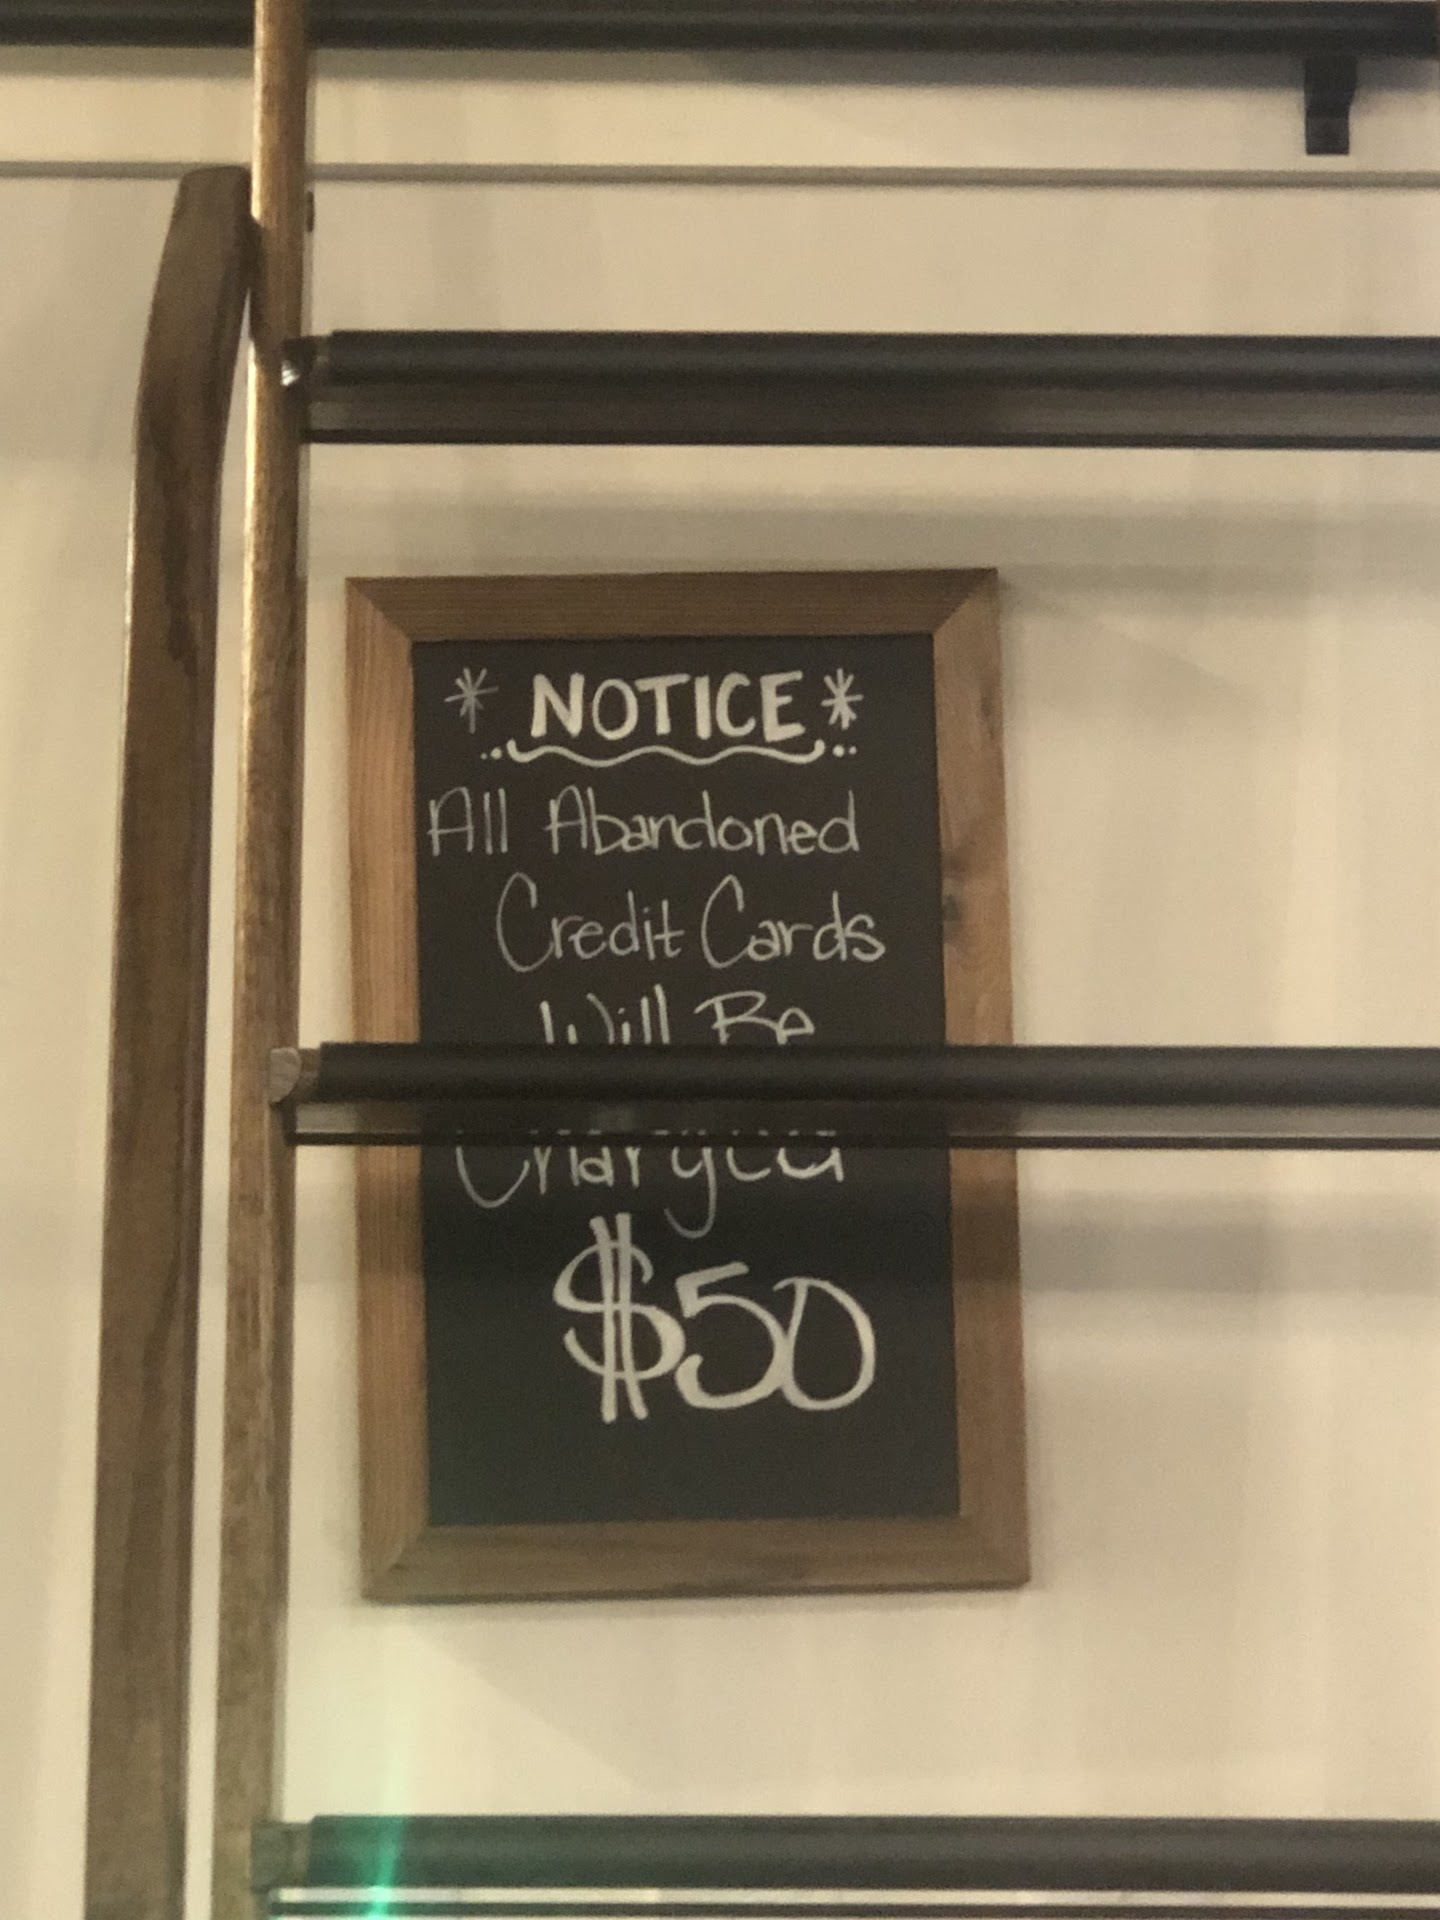 * NOTICE *
All Abandoned
Credit Cards
Will Be
Charged
$50